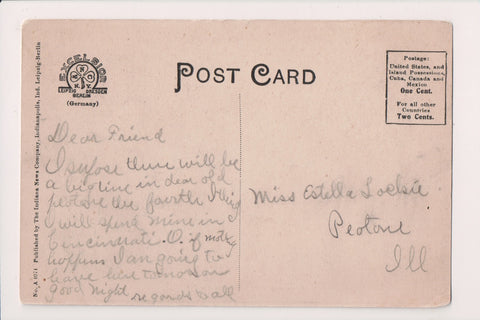 No. A 1071 Published by The Indiana News Company, Indianapolis, Ind. Leipzig-Berlin
EXCELSIOR
N.Y.
LEIPZIG DRESDEN
BERLIN
(Germany)
POST CARD
Postage:
United States, and
Island Possessions,
Cuba, Canada and
Mexico
One Cent.
For all other
Countries
Two Cents.
Dear Friend
I supose there will be
a big time in dear old
peotone the fourth I thing
I will spend mine in
Cencinrati. O. if nothing
happens I am going to
leave here tomorow
good night regards to all
Miss Estella
Peotone
Ill